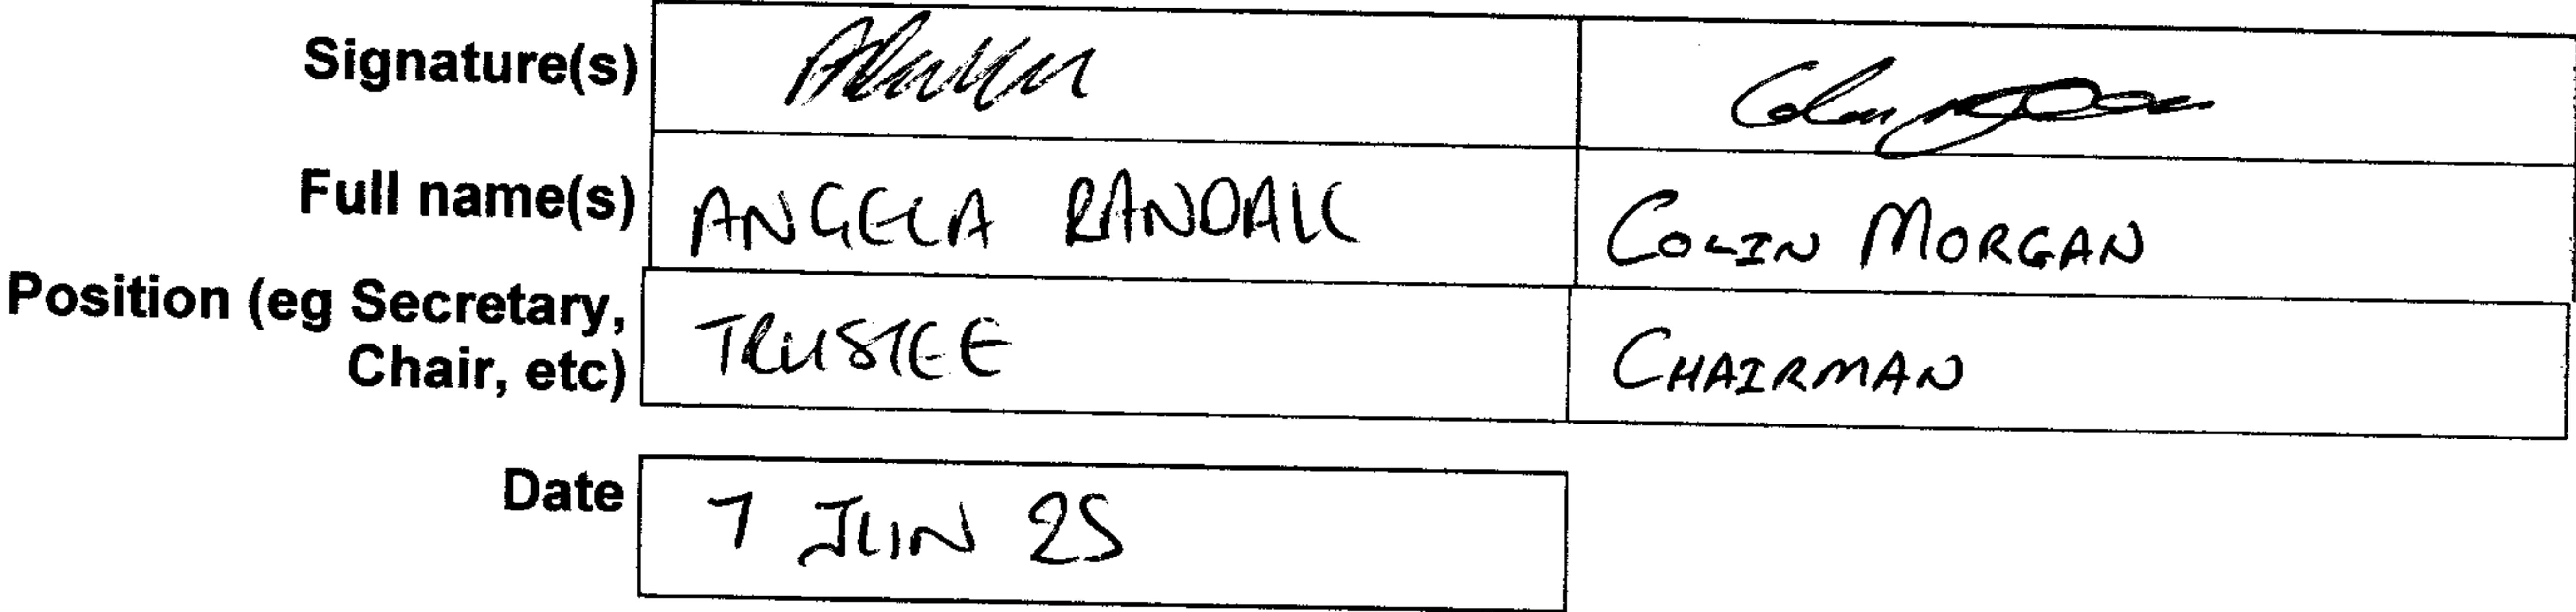 Signature(s)
Full name(s) ANGELA RANDALL COLIN MORGAN
Position (eg Secretary,
Chair, etc) TRUSTEE CHAIRMAN
Date 7 JUN 25